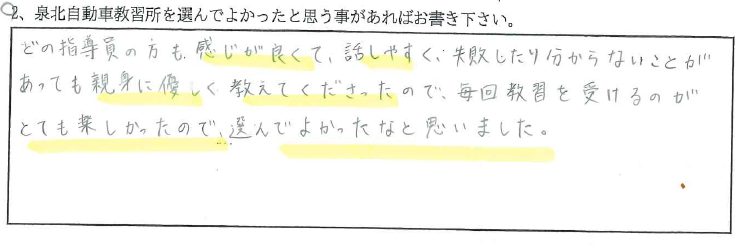 2、泉北自動車教習所を選んでよかったと思う事があればお書き下さい。
どの指導員の方も、感じが良くて、話しやすく、失敗したり分からないことが
あっても親身に優しく教えてくださったので、毎回教習を受けるのが
とても楽しかったので、選んでよかったなと思いました。